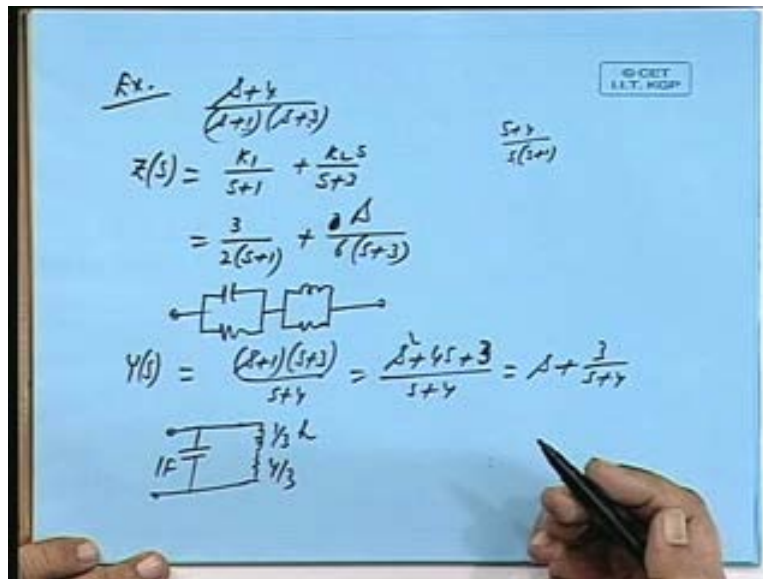 Ex. (s+4)/((s+1)(s+3))
© CET
I.I.T. KGP
(s+4)/(s(s+1))
Z(s) = K1/(s+1) + K2 s/(s+3)
= 3/(2(s+1)) + s/(6(s+3))
Y(s) = ((s+1)(s+3))/(s+4) = (s²+4s+3)/(s+4) = s + 3/(s+4)
1F
1/3 h
4/3